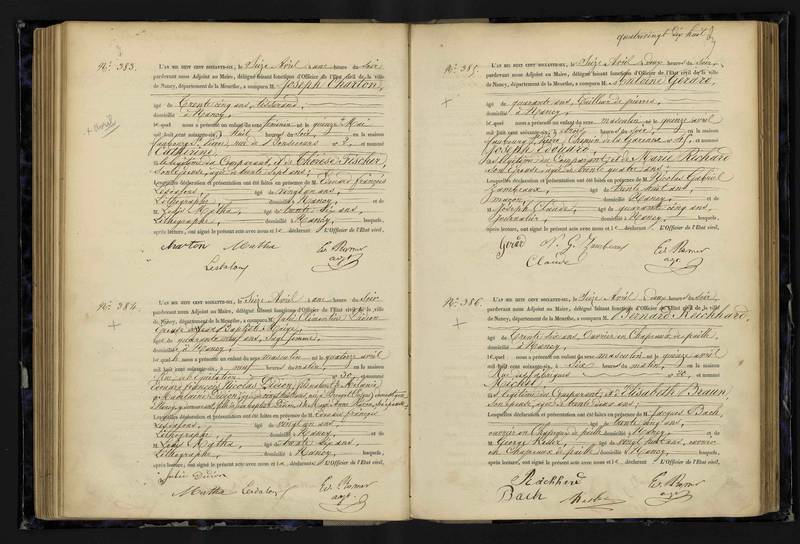 quatrevingt dix huit
N°. 383.
L'AN MIL HUIT CENT SOIXANTE-SIX, le Seize Avril, à une heure du Soir
pardevant nous Adjoint au Maire, délégué faisant fonctions d'Officier de l'Etat civil de la ville
de Nancy, département de la Meurthe, a comparu M. Joseph Charton,
âgé de Trente cinq ans, tisserand,
domicilié à Nancy,
lequel nous a présenté un enfant du sexe féminin né le quinze
mil huit cent soixante-six, à huit heures du Soir, en la maison
faubourg St. Pierre, rue de Bonsecours n° 2, a nommé
Catherine,
et légitime du Comparant, et de Thérèse Fischer,
Son épouse, âgée de trente sept ans;
Lesquelles déclaration et présentation ont été faites en présence de M. Edouard françois
Lesdalons, âgé de vingt un ans,
Lithographe, domicilié à Nancy, et de
M. Louis Mutha, âgé de trente six ans,
Lithographe, domicilié à Nancy, lesquels,
après lecture, ont signé le présent acte avec nous et le déclarant. L'Officier de l'Etat civil,
Mutha
Lesdalons
adj.
+ avril
N°. 384.
+
L'AN MIL HUIT CENT SOIXANTE-SIX, le Seize Avril à une heure du Soir
pardevant nous Adjoint au Maire, délégué faisant fonctions d'Officier de l'Etat civil de la ville
de Nancy, département de la Meurthe, a comparu M. Julie Clémentine Didion
épouse de Jean Baptiste
âgée de quarante neuf ans, Sage femme,
domiciliée à Nancy,
lequel nous a présenté un enfant du sexe masculin né le quatorze avril
mil huit cent soixante-six, à neuf heures du matin, en la maison
Rue de l'Equitation n° 30, a nommé
Edouard françois Nicolas Didion,
Lesquelles déclaration et présentation ont été faites en présence de M. Edouard françois
Lesdalons, âgé de vingt un ans,
Lithographe, domicilié à Nancy, et de
M. Louis Mutha, âgé de trente six ans,
Lithographe, domicilié à Nancy, lesquels,
après lecture, ont signé le présent acte avec nous et le déclarant. L'Officier de l'Etat civil,
Julie Didion
Mutha Lesdalons
adj.
N°. 385.
+
L'AN MIL HUIT CENT SOIXANTE-SIX, le Seize Avril à deux heures du Soir,
pardevant nous Adjoint au Maire, délégué faisant fonctions d'Officier de l'Etat civil de la ville
de Nancy, département de la Meurthe, a comparu M. Antoine Gérard,
âgé de quarante ans, tailleur de pierres,
domicilié à Nancy,
lequel nous a présenté un enfant du sexe masculin né le quinze avril
mil huit cent soixante-six, à cinq heures du Soir, en la maison
faubourg St. Pierre, Chemin de la n° et a nommé
Joseph Edouard,
fils légitime du Comparant, et de Marie Richard
Son épouse, âgée de trente quatre ans;
Lesquelles déclaration et présentation ont été faites en présence de M. Nicolas Gabriel
Jambeaux, âgé de trente huit ans,
maçon, domicilié à Nancy, et de
M. Joseph Claude, âgé de quarante cinq ans,
Journalier, domicilié à Nancy, lesquels,
après lecture, ont signé le présent acte avec nous et le déclarant. L'Officier de l'Etat civil,
Gérard N. G. Jambeaux
Claude adj.
N°. 386.
+
L'AN MIL HUIT CENT SOIXANTE-SIX, le Seize Avril, à deux heures du Soir,
pardevant nous Adjoint au Maire, délégué faisant fonctions d'Officier de l'Etat civil de la ville
de Nancy, département de la Meurthe, a comparu M. Bernard Reichhard,
âgé de Trente six ans, Ouvrier en Chapeaux de paille,
domicilié à Nancy,
lequel nous a présenté un enfant du sexe masculin né le quinze avril
mil huit cent soixante-six, à Six heures du matin, en la maison
Rue des fabriques n° 20, a nommé
Michel,
fils légitime du Comparant, et d'Elisabeth Braun,
Son épouse, âgée de trente ans;
Lesquelles déclaration et présentation ont été faites en présence de M. Jacques Bach,
âgé de trente cinq ans,
ouvrier en Chapeaux de paille, domicilié à Nancy, et de
M. George âgé de vingt huit ans, ouvrier
en Chapeaux de paille, domicilié à Nancy, lesquels,
après lecture, ont signé le présent acte avec nous et le déclarant. L'Officier de l'Etat civil,
Bach
adj.